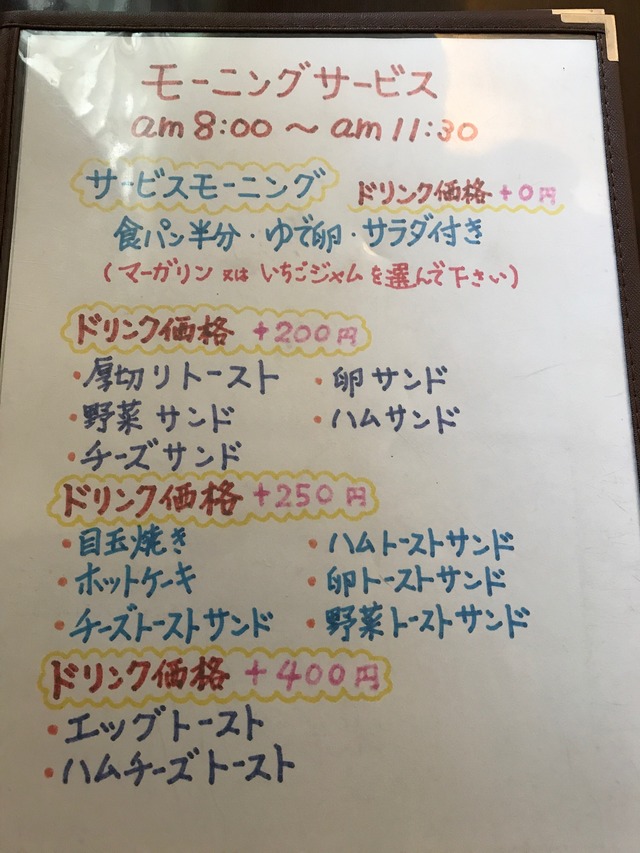 モーニングサービス
am 8:00 ～ am 11:30
サービスモーニング ドリンク価格 +0円
食パン半分・ゆで卵・サラダ付き
(マーガリン 又は いちごジャムを選んで下さい)
ドリンク価格 +200円
・厚切りトースト ・卵サンド
・野菜サンド ・ハムサンド
・チーズサンド
ドリンク価格 +250円
・目玉焼き ・ハムトーストサンド
・ホットケーキ ・卵トーストサンド
・チーズトーストサンド ・野菜トーストサンド
ドリンク価格 +400円
・エッグトースト
・ハムチーズトースト